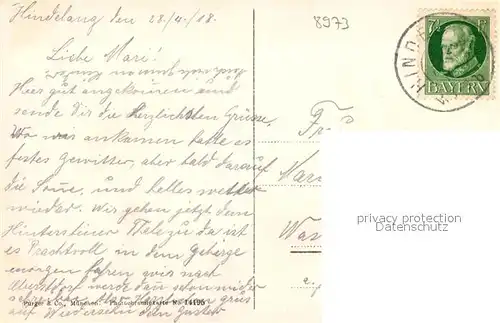 Hindelang den 28/4/18.
8973
7½ Pf
BAYERN
HINDE
Liebe Mari!
Hier gut angekommen und
sende dir die herzlichsten Grüsse.
Wo wir ankamen hatte es
festes gewitter, aber bald darauf
die Sonne, und helles wetter
wieder. Wir gehen jetzt dem
Hintersteiner Tale zu da ist
es Prachtvoll in dem Gebirge
morgen fahren wir nach
Oberstdorf werde dan schon wieder
schreiben
auf Wiedersehn dein Gustav
Fr
Mari
privacy protection
Datenschutz
Purger & Co., München. - Photochromiekarte No. 14195